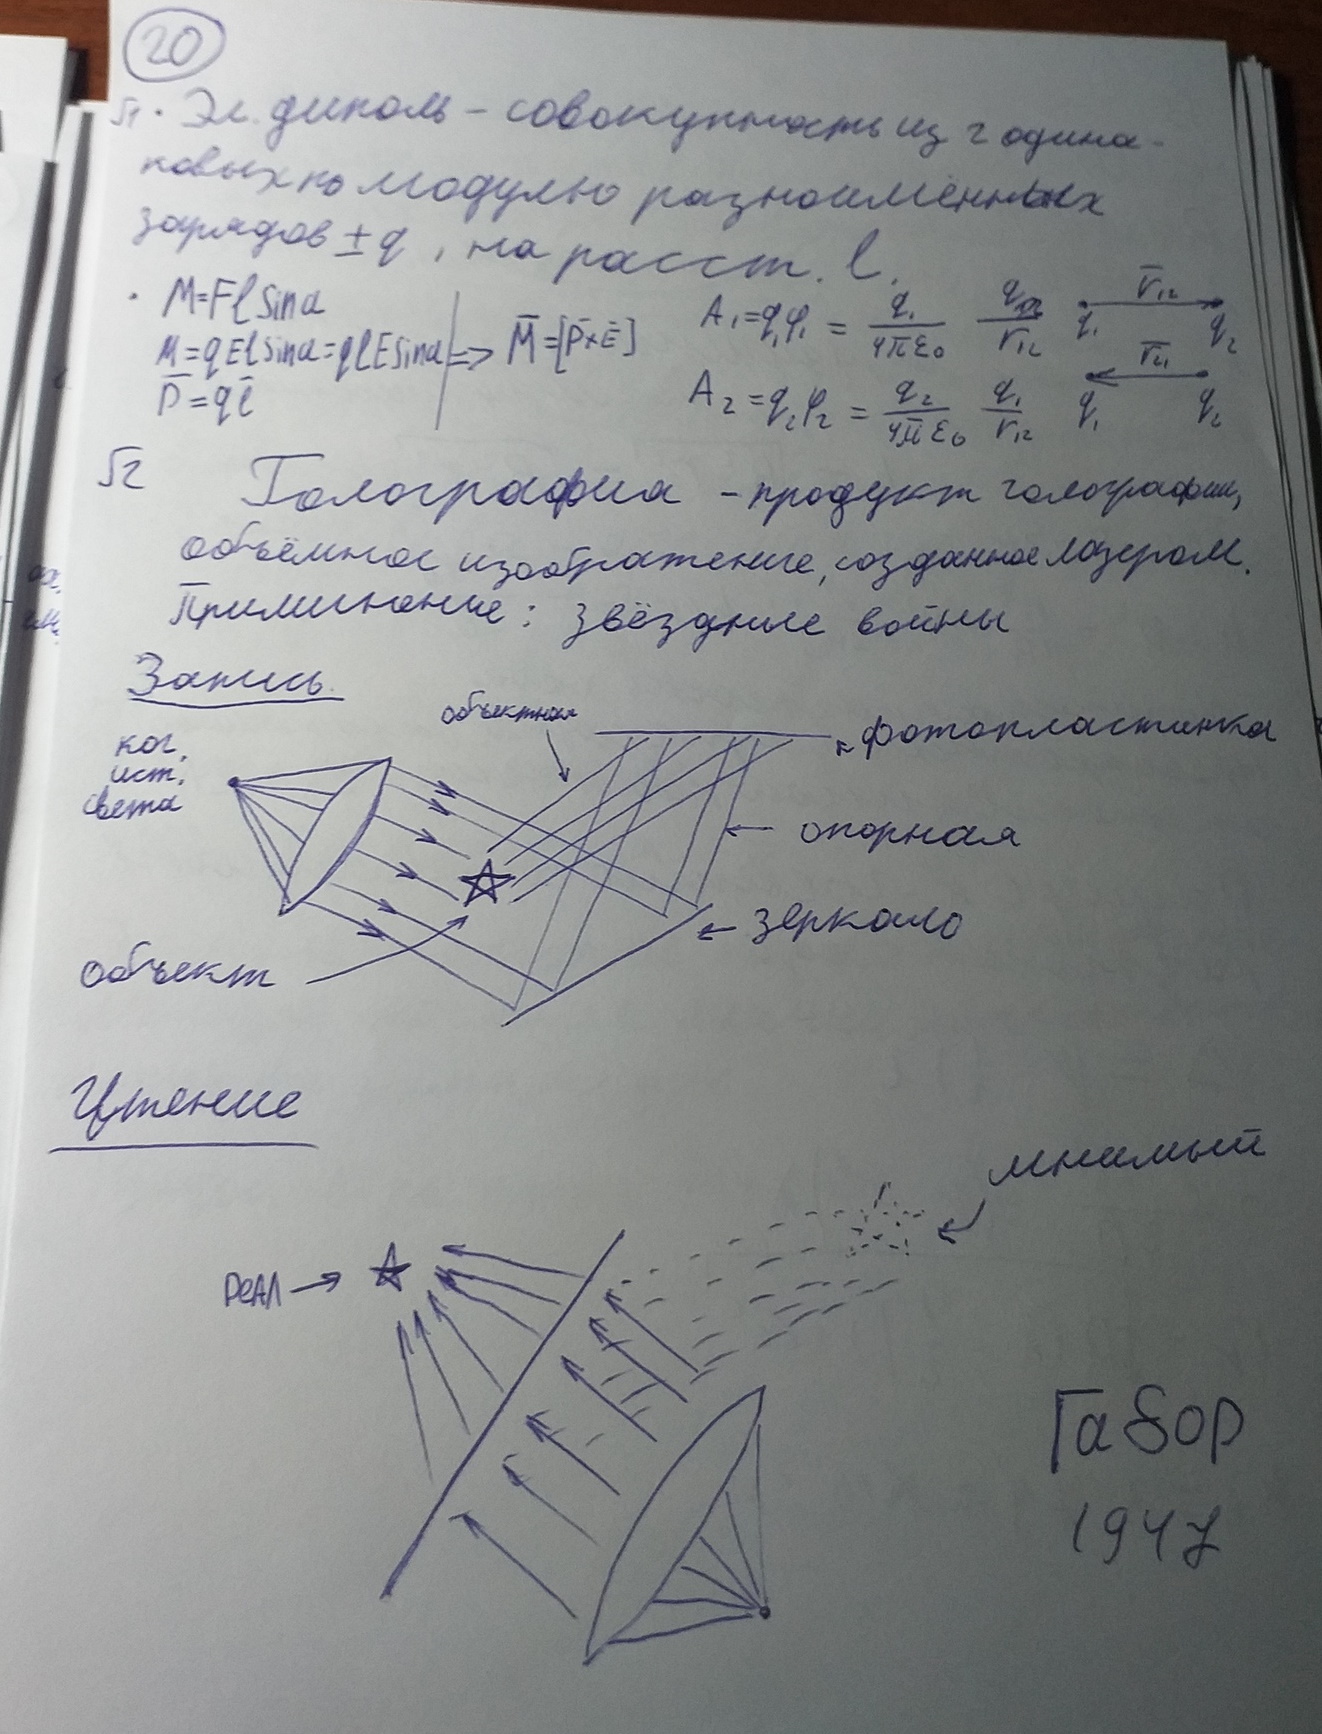 20
√1 · Эл. диполь – совокупность из 2 одина-
ковых по модулю разноимённых
зарядов ±q, на расст. l.
· M=Fl sinα
M=qEl sinα=qlE sinα => M̄=[P̄×Ē]
P̄=ql̄
A₁=q₁φ₁ = q₁/4πε₀ q₂/r₁₂ r̄₁₂ q₁ q₂
A₂=q₂φ₂ = q₂/4πε₀ q₁/r₁₂ r̄₂₁ q₁ q₂
√2 Голография – продукт голографии,
объёмное изображение, созданное лазером.
Приминение: звёздные войны
Запись.
объектная
фотопластинка
ког.
ист.
света
опорная
зеркало
объект
Чтение
мнимый
реал
Габор
1947